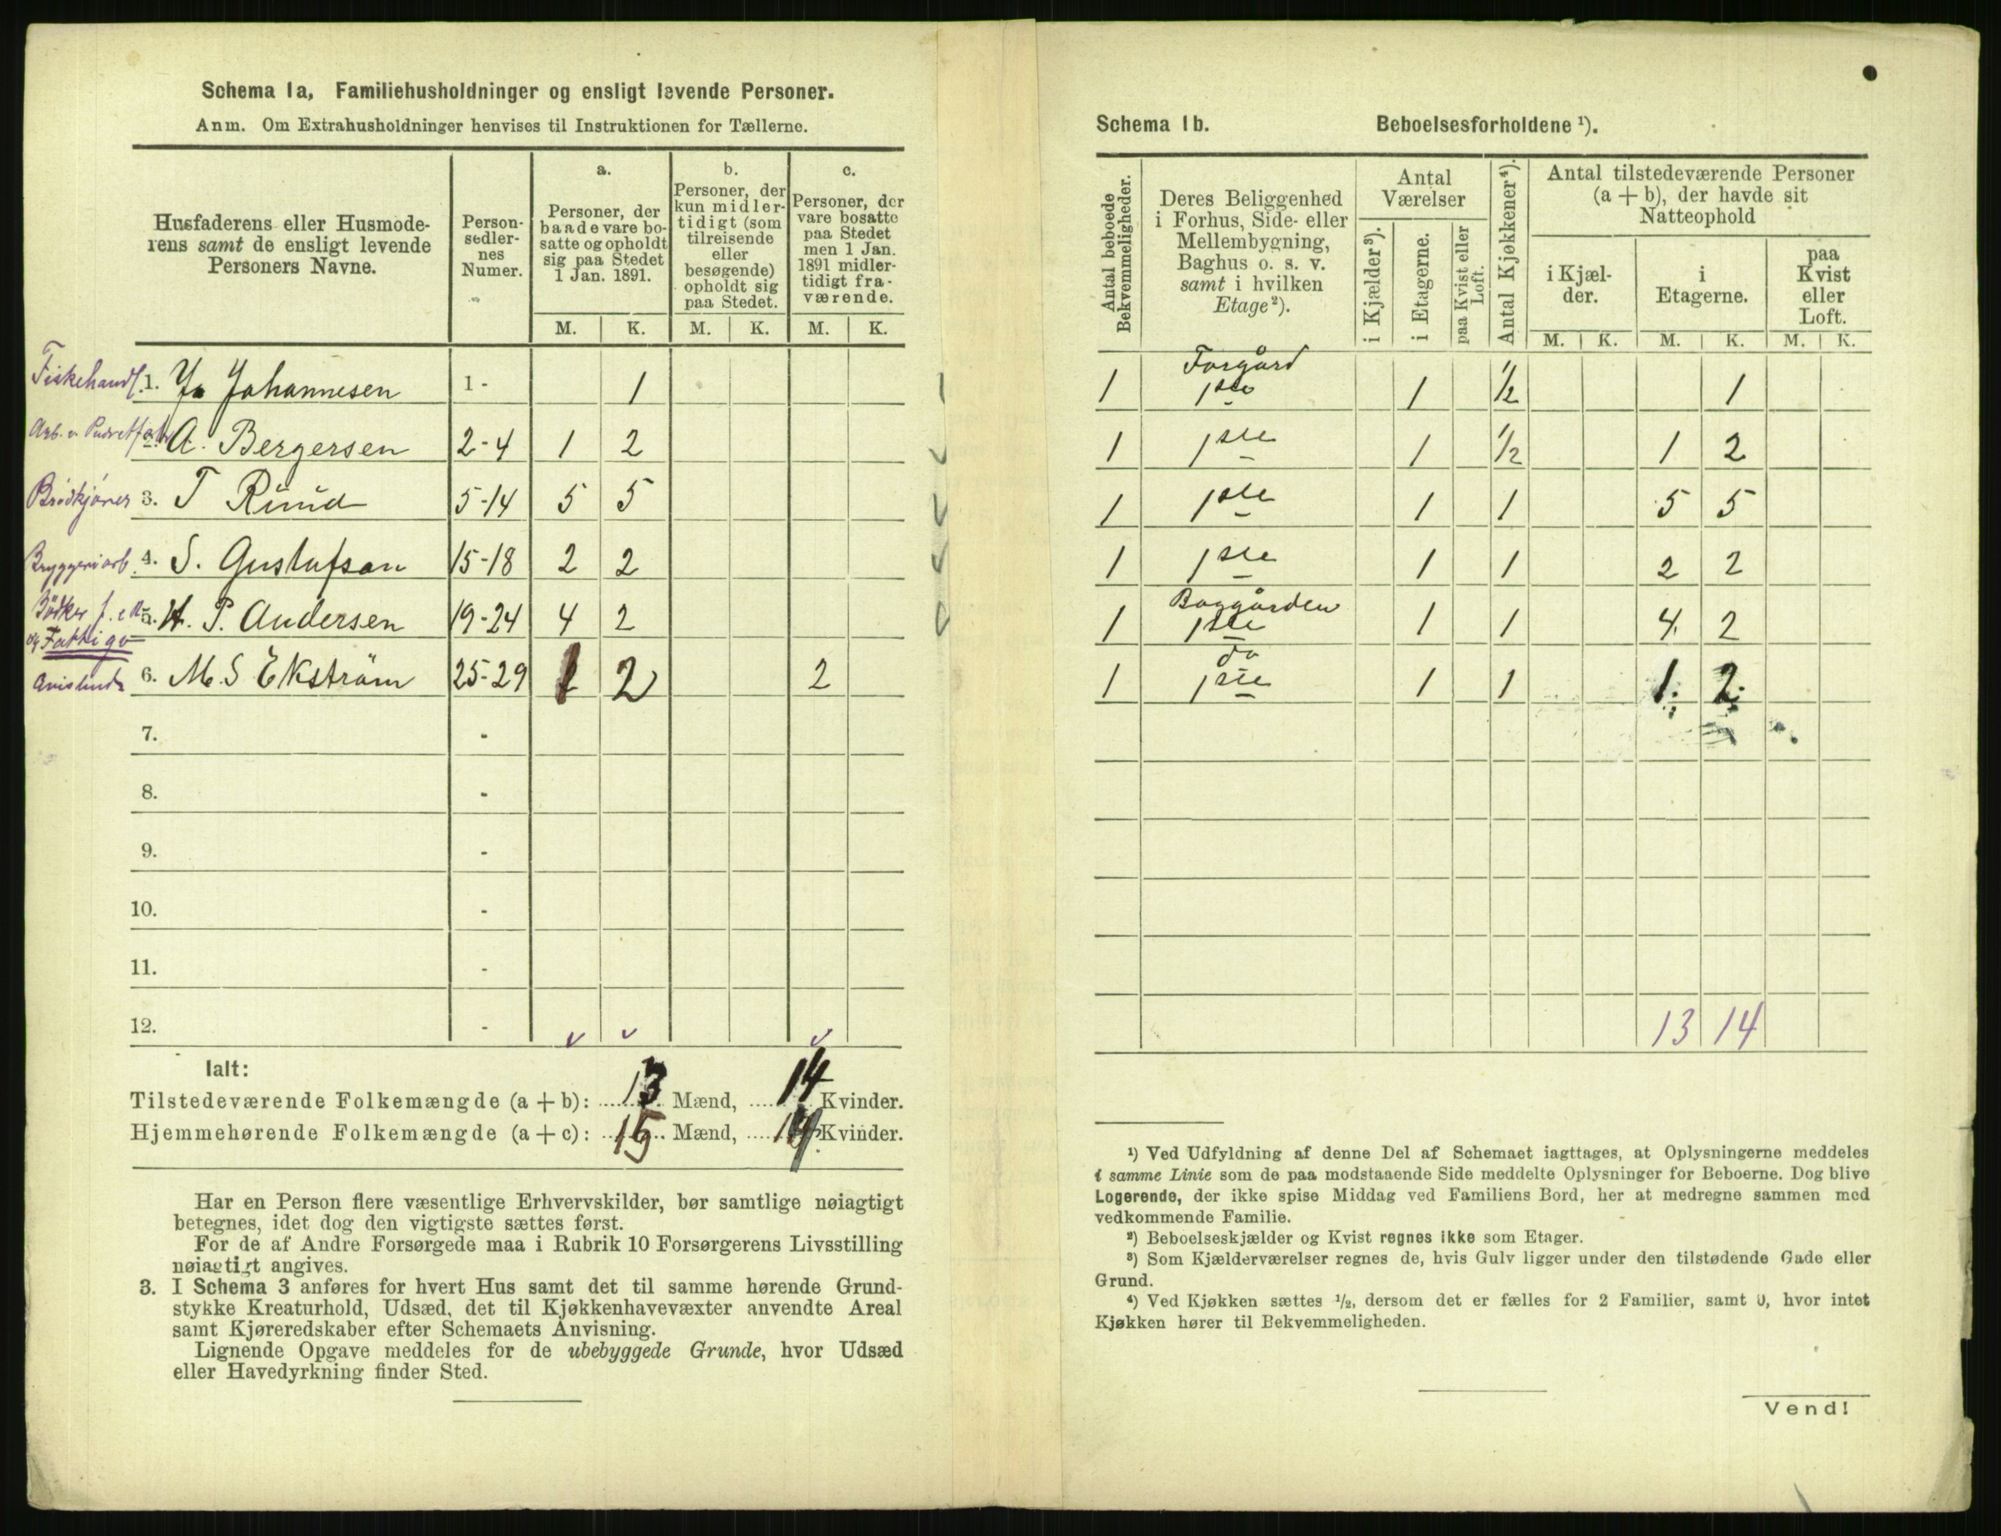 Schema 1a, Familiehusholdninger og ensligt levende Personer.
Anm. Om Extrahusholdninger henvises til Instruktionen for Tællerne.
Husfaderens eller Husmode-
rens samt de ensligt levende
Personers Navne.
Person-
sedler-
nes
Numer.
a.
Personer, der
baade vare bo-
satte og opholdt
sig paa Stedet
1 Jan. 1891.
b.
Personer, der
kun midler-
tidigt (som
tilreisende
eller
besøgende)
opholdt sig
paa Stedet.
c.
Personer, der
vare bosatte
paa Stedet
men 1 Jan.
1891 midler-
tidigt fra-
værende.
M. K. M. K. M. K.
Fiskehandl. 1. Johannesen 1 - 1
Arb. v. A. Bergersen 2-4 1 2
Brødkjører 3. T Ruud 5-14 5 5
Bryggeriarb. 4. S. Gustafson 15-18 2 2
Bødker 5. H. P. Andersen 19-24 4 2
og Fattigv
6. M. S Ekström 25-29 1 2 2
7. -
8. -
9. -
10. -
11. -
12. -
Ialt:
Tilstedeværende Folkemængde (a + b): 13 Mænd, 14 Kvinder.
Hjemmehørende Folkemængde (a + c): 15 Mænd, 14 Kvinder.
Har en Person flere væsentlige Erhvervskilder, bør samtlige nøiagtigt
betegnes, idet dog den vigtigste sættes først.
For de af Andre Forsørgede maa i Rubrik 10 Forsørgerens Livsstilling
nøiagtigt angives.
3. I Schema 3 anføres for hvert Hus samt det til samme hørende Grund-
stykke Kreaturhold, Udsæd, det til Kjøkkenhavevæxter anvendte Areal
samt Kjøreredskaber efter Schemaets Anvisning.
Lignende Opgave meddeles for de ubebyggede Grunde, hvor Udsæd
eller Havedyrkning finder Sted.
Schema 1b. Beboelsesforholdene ¹).
Antal beboede
Bekvemmeligheder.
Deres Beliggenhed
i Forhus, Side- eller
Mellembygning,
Baghus o. s. v.
samt i hvilken
Etage²).
Antal
Værelser
i Kjælder³).
i Etagerne.
paa Kvist eller
Loft.
Antal Kjøkkener⁴).
Antal tilstedeværende Personer
(a + b), der havde sit
Natteophold
i Kjæl-
der.
i
Etagerne.
paa
Kvist
eller
Loft.
M. K. M. K. M. K.
Forgård
1 1ste 1 1/2 1
1 1ste 1 1/2 1 2
1 1ste 1 1 5 5
1 1ste 1 1 2 2
Baggården
1 1ste 1 1 4 2
do
1 1ste 1 1 1 2
13 14
¹) Ved Udfyldning af denne Del af Schemaet iagttages, at Oplysningerne meddeles
i samme Linie som de paa modstaaende Side meddelte Oplysninger for Beboerne. Dog blive
Logerende, der ikke spise Middag ved Familiens Bord, her at medregne sammen med
vedkommende Familie.
²) Beboelseskjælder og Kvist regnes ikke som Etager.
³) Som Kjælderværelser regnes de, hvis Gulv ligger under den tilstødende Gade eller
Grund.
⁴) Ved Kjøkken sættes ¹/₂, dersom det er fælles for 2 Familier, samt 0, hvor intet
Kjøkken hører til Bekvemmeligheden.
Vend!